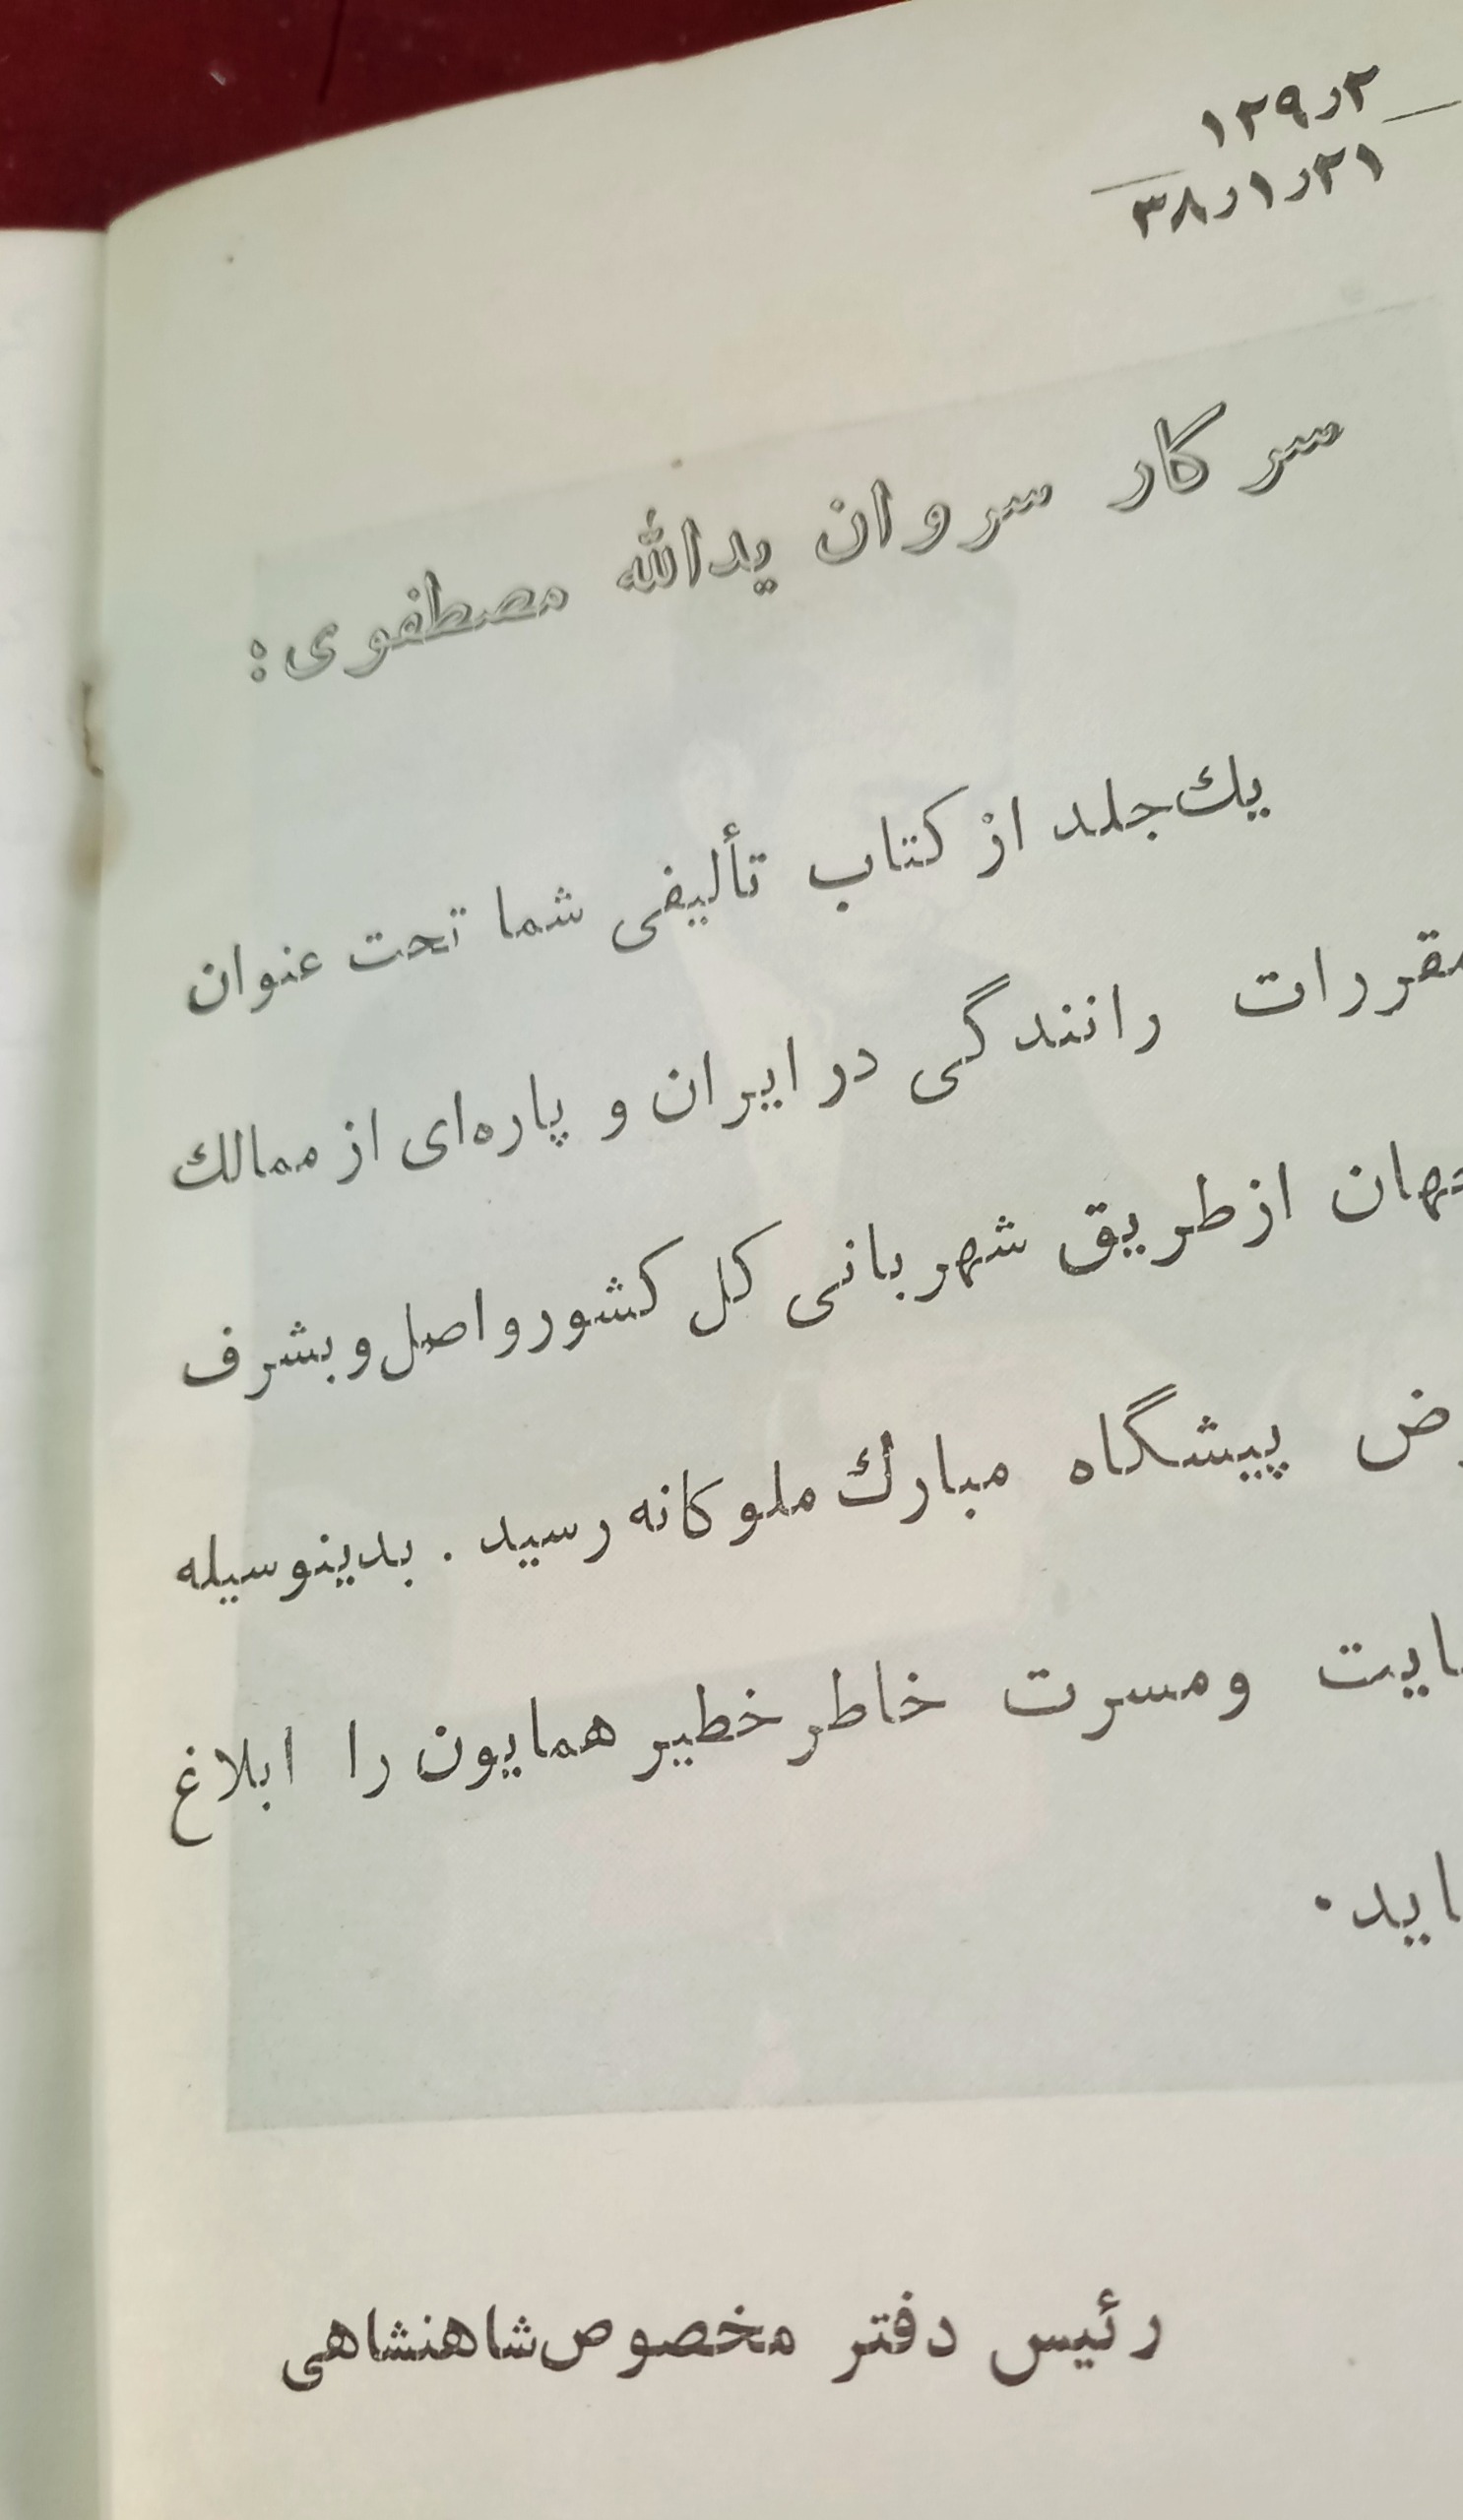 ۱۲۹ر۲
۳۸ر۱ر۲۱
سر کار سروان یدالله مصطفوی:
یك جلد از کتاب تألیفی شما تحت عنوان
مقررات رانندگی در ایران و پاره‌ای از ممالك
جهان از طریق شهربانی کل کشور واصل و بشرف
پیشگاه مبارك ملوکانه رسید . بدینوسیله
ومسرت خاطر خطیر همایون را ابلاغ
رئیس دفتر مخصوص شاهنشاهی